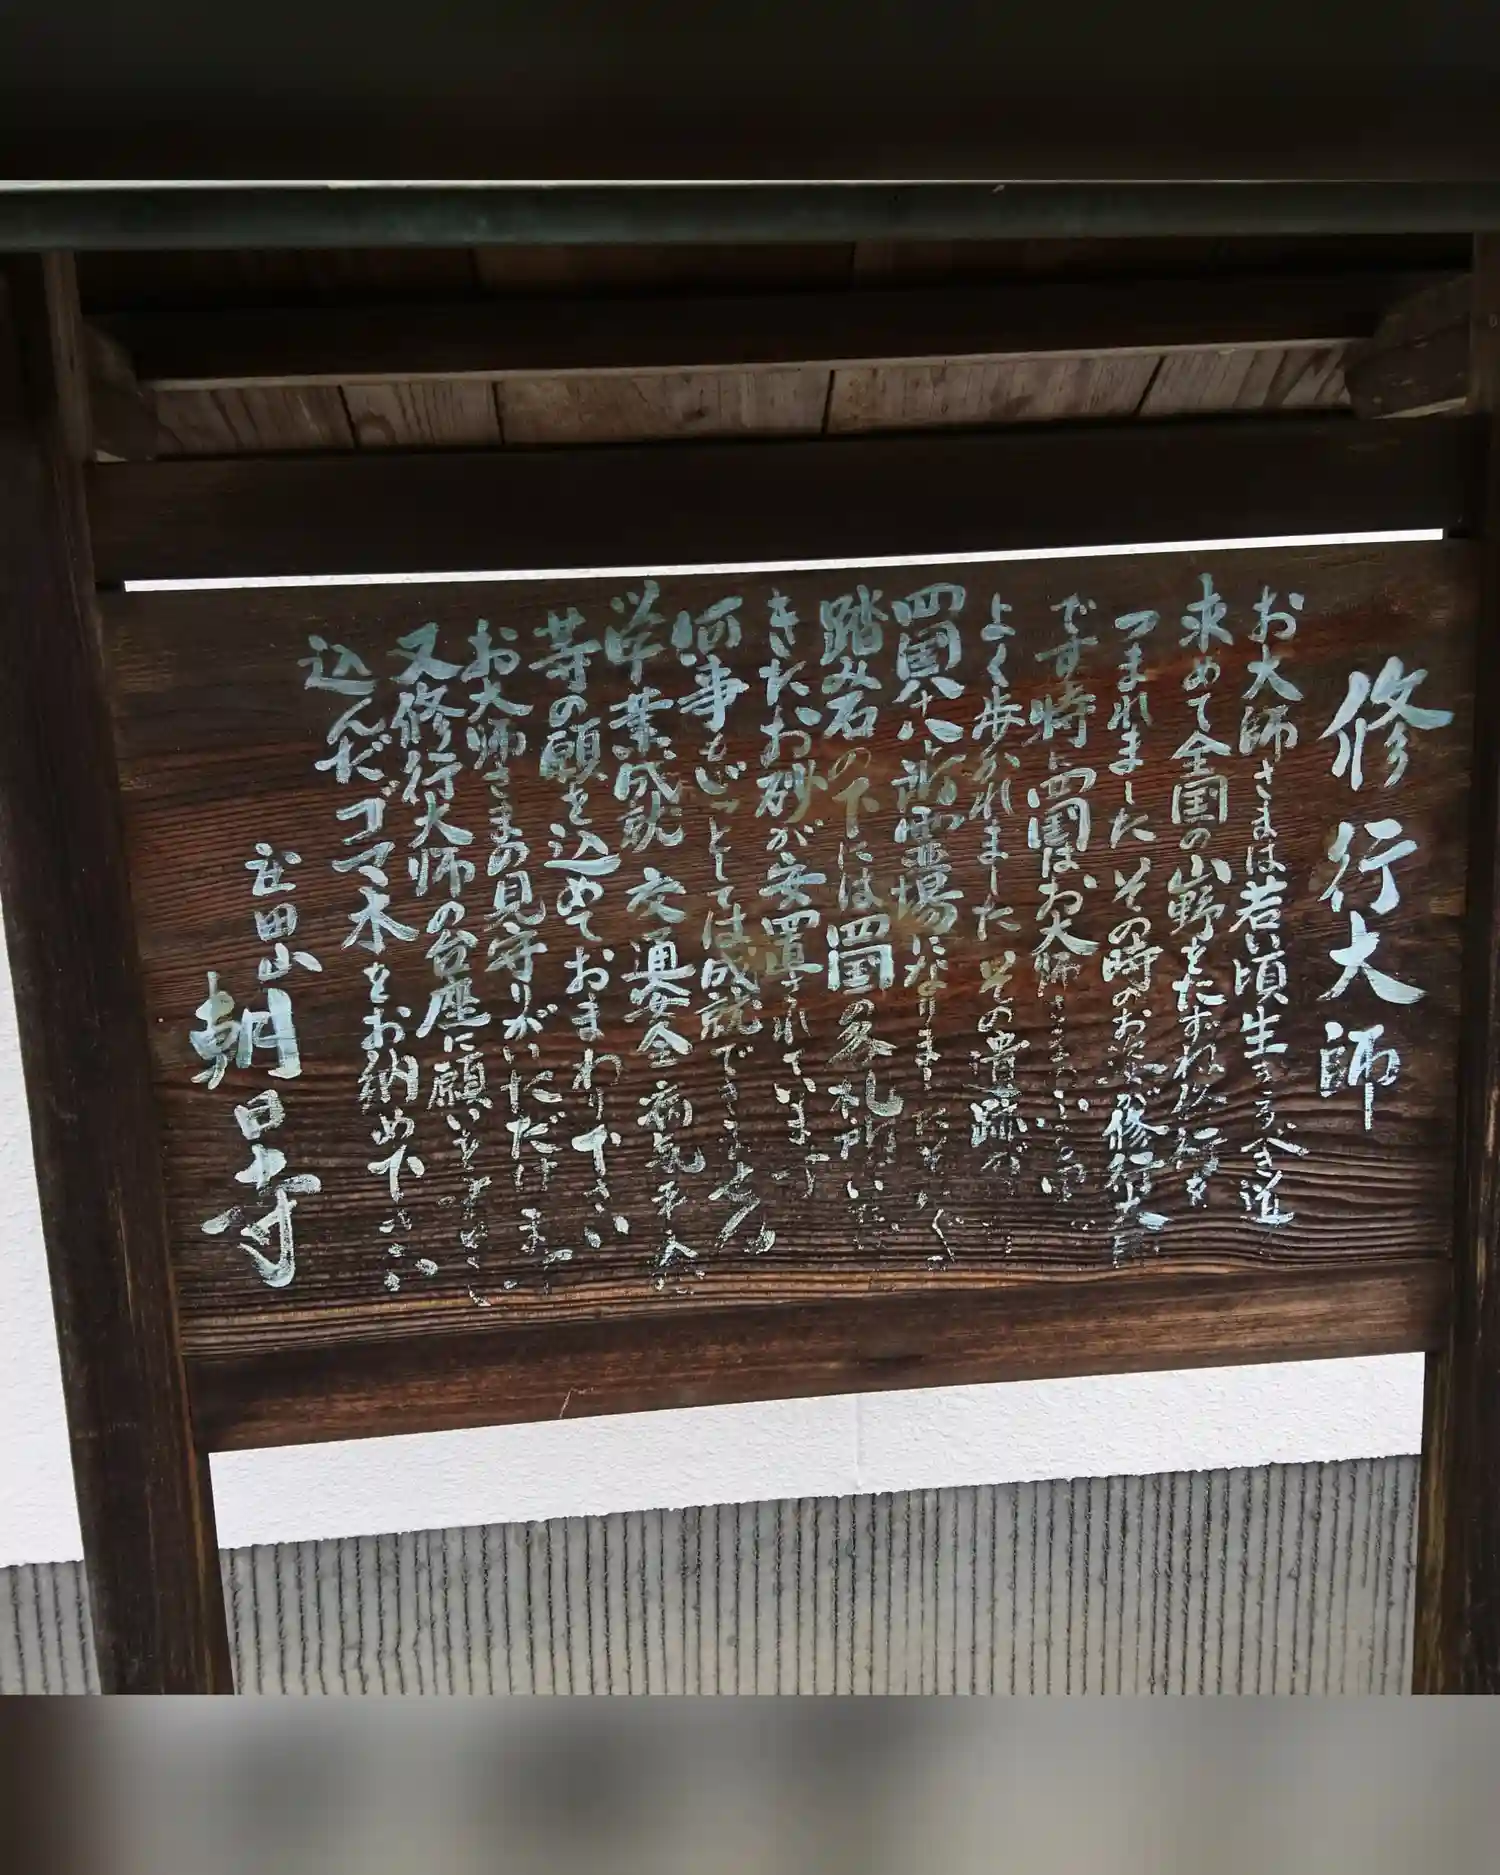 修行大師
お大師さまは若い頃生きるべき道
求めて全国の山野をたずね修行を
つまれました その時のお姿が修行大師
です 特に四国はお大師さま
よく歩かれました その遺跡が
四国八十八ヶ所霊場になりました
踏み石の下には四国の各札所
きたお砂が安置されています
何事もじっとしては成就できません
学業成就 交通安全 病気平癒
等の願を込めておまわり下さい
お大師さまの見守りがいただけます
又修行大師の台座に願いを
込んだゴマ木をお納め下さい
庄田山 朝日寺